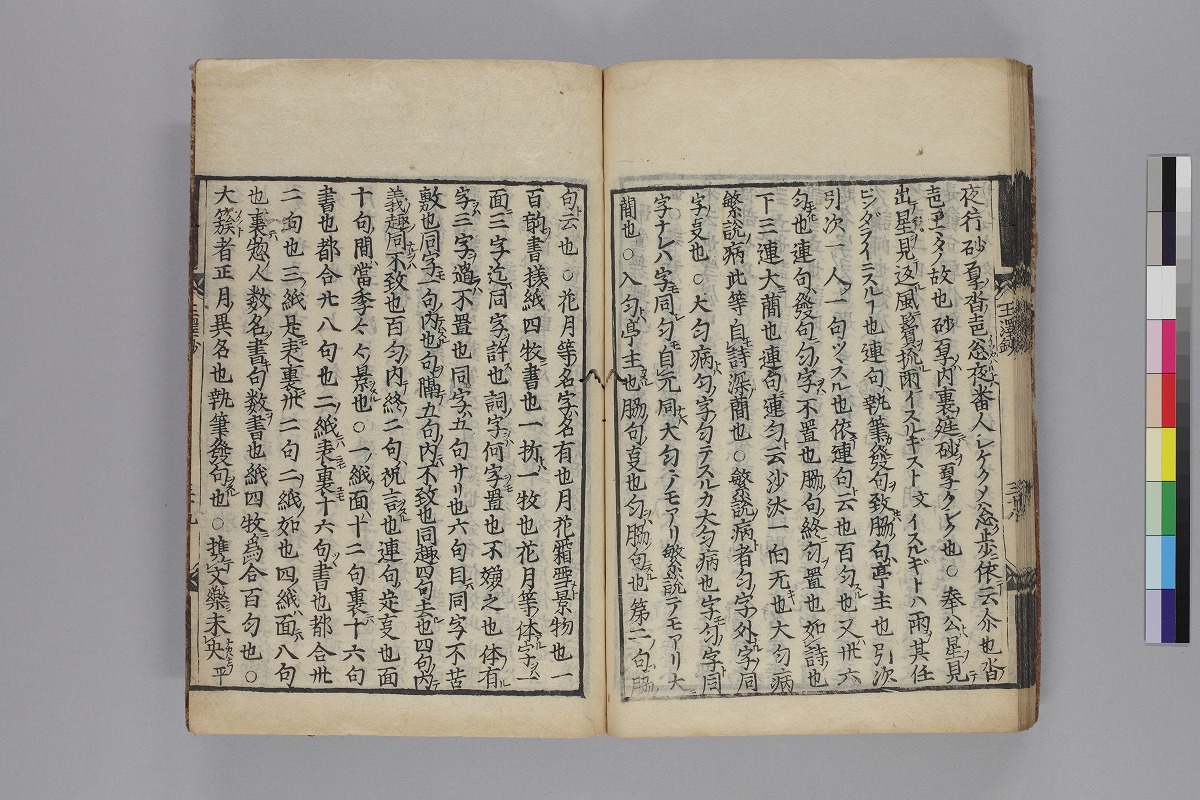 夜行砂夐沓岜忩夜番人レケクメ忩歩依云介也沓
岜ヱタノ故也砂夐内裏堂砂夐クレク也○奉公星見
出星見返風鬢梳雨イスルギスト文イスルギトハ雨其任
ビンダライニスルー也連句執筆發句致脇句亭主也引次
引次一人一句ツヽスル也依連句云也百匀也又卅六
匀也連句發句匀字不置也脇句終匀置也如詩也
下三連大蕳也連句連匀云沙汰一向无也大匀病
繁説病此等自詩深蕳也○繁説病者匀字外字同
字叓也○大匀病匀字匀テスルカ大匀病也字匀字同
字ナレハ字同匀自元同大匀ノモアリ繁説ニアモアリ大
蕳也○入匀亭主也脇句叓也匀脇句也第二句脇
句云也○花月等名字名有也月花霜雪景物也一
百韵書様紙四枚書也一拆一枚也花月等体字
面三字迄同字許也詞字何字置也不嬚之也体有
字三字過不置也同字五句サリ也六句目同字不苦
敷也同字一句内也句隔五句内不致也同趣四句去也四句内
義趣同不致也百匀内終二句祝言也連句定叓也面
十句間當季々々景也○一紙面十二句裏十六句
書也都合廿八句也二紙表裏十六句書也都合卅
二句也三紙是表裏卅二句二紙如也四紙面八句
也裏惣人数名書句数書也紙四枚爲合百匀也○
大簇者正月異名也執筆發句也○携文樂未央平
玉澤鈔